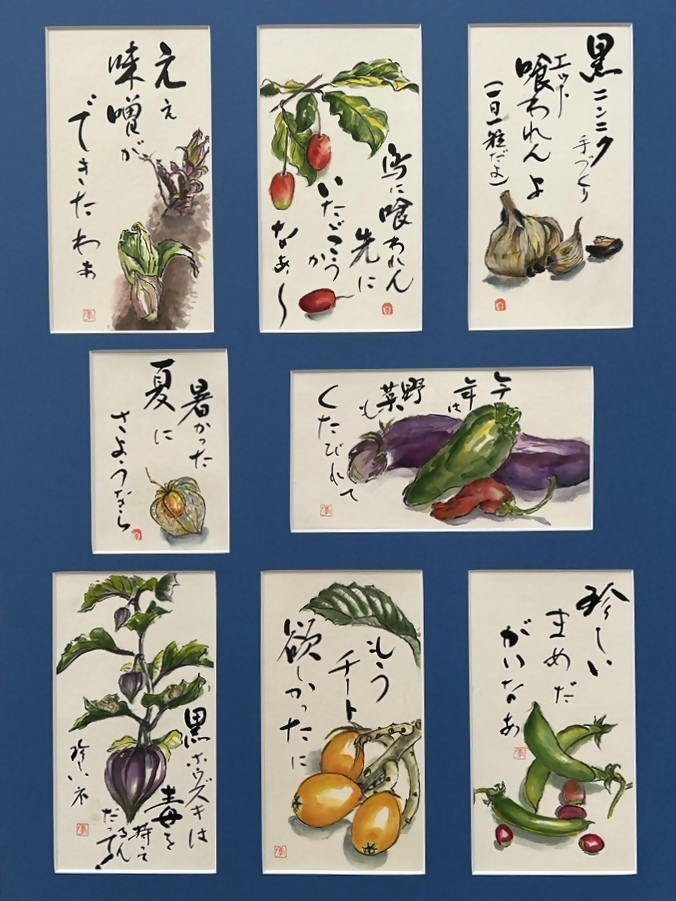 ええ
味噌が
できたわぁ
鳥に喰われん
先に
いたどこう
か
なぁ〜
黒ニンニク
手づくり
エット
喰われんよ
(一日一粒だよ)
暑かった
夏に
さようなら
今年は
野菜も
くたびれて
黒ホウズキは
毒を
持って
るん
だって!
珍しいネ
もう
チート
欲しかったに
珍しい
まめだ
がいなぁ